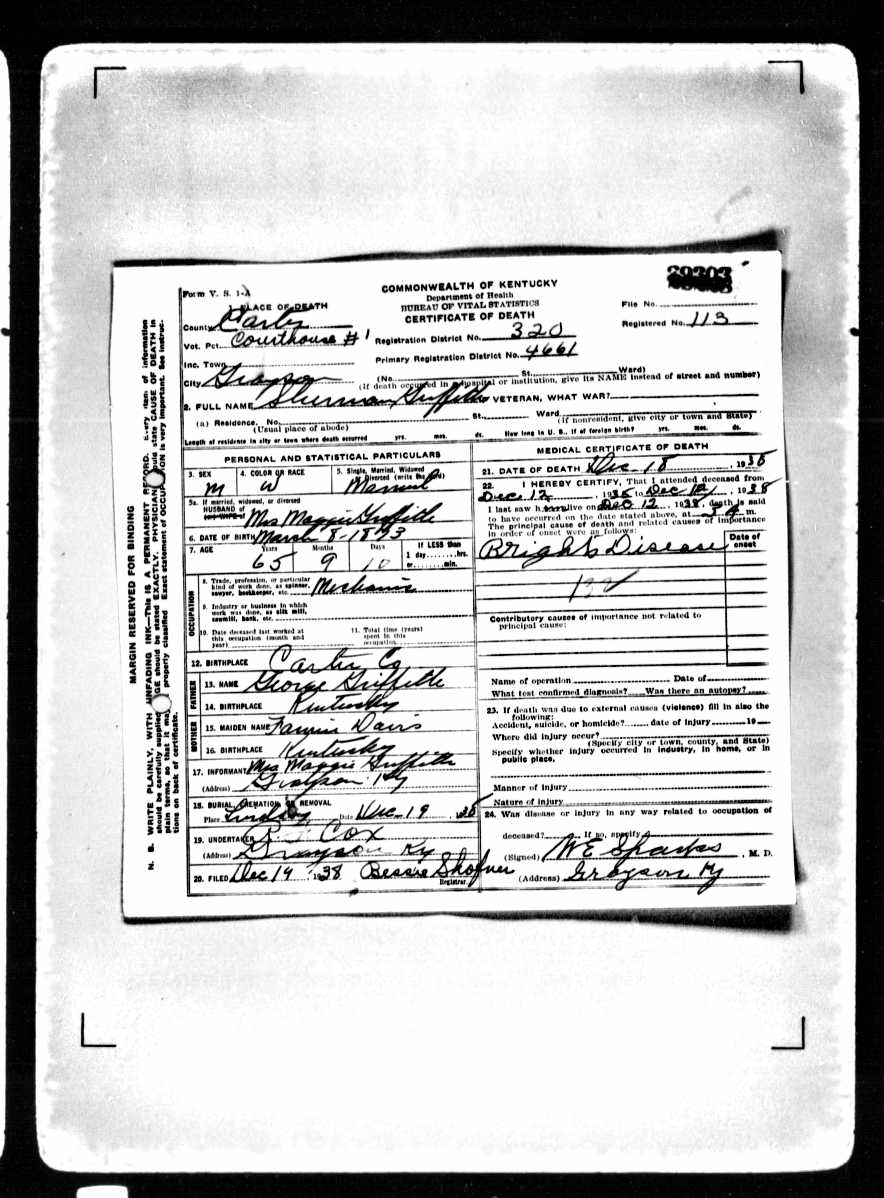 Form V. S. 1-A
PLACE OF DEATH
COMMONWEALTH OF KENTUCKY
Department of Health
BUREAU OF VITAL STATISTICS
CERTIFICATE OF DEATH
File No.
Registered No. 113
County Carter
Vot. Pct. Courthouse #1
Registration District No. 320
Inc. Town
Primary Registration District No. 4661
City Grayson (No. St. Ward)
(If death occurred in a hospital or institution, give its NAME instead of street and number)
2. FULL NAME Sherman Griffith VETERAN, WHAT WAR?
(a) Residence. No. St., Ward
(Usual place of abode) (If nonresident, give city or town and State)
Length of residence in city or town where death occurred yrs. mos. ds. How long in U. S., if of foreign birth? yrs. mos. ds.
PERSONAL AND STATISTICAL PARTICULARS
3. SEX
M
4. COLOR OR RACE
W
5. Single, Married, Widowed or Divorced (write the word)
Married
5a. If married, widowed, or divorced
HUSBAND of
(or) WIFE of
Mrs Maggie Griffith
6. DATE OF BIRTH March 8-1873
7. AGE Years Months Days If LESS than
65 9 10
1 day hrs.
or min.
OCCUPATION
8. Trade, profession, or particular
kind of work done, as spinner,
sawyer, bookkeeper, etc. Mechanic
9. Industry or business in which
work was done, as silk mill,
sawmill, bank, etc.
10. Date deceased last worked at
this occupation (month and
year)
11. Total time (years)
spent in this
occupation
12. BIRTHPLACE Carter Co
FATHER
13. NAME George Griffith
14. BIRTHPLACE Kentucky
MOTHER
15. MAIDEN NAME Fannie Davis
16. BIRTHPLACE Kentucky
17. INFORMANT Mrs Maggie Griffith
(Address) Grayson Ky
18. BURIAL, CREMATION OR REMOVAL
Place Date Dec 19, 1938
19. UNDERTAKER Cox
(Address) Grayson Ky
20. FILED Dec 19 1938 Bessie Shofner
Registrar.
MEDICAL CERTIFICATE OF DEATH
21. DATE OF DEATH Dec 18, 1938
22. I HEREBY CERTIFY, That I attended deceased from
Dec. 12, 1938 to Dec 12, 1938
I last saw h alive on Dec 12, 1938, death is said
to have occurred on the date stated above, at m.
The principal cause of death and related causes of importance
in order of onset were as follows:
Date of onset
Brights Disease
Contributory causes of importance not related to
principal cause:
Name of operation Date of
What test confirmed diagnosis? Was there an autopsy?
23. If death was due to external causes (violence) fill in also the
following:
Accident, suicide, or homicide? date of injury 19
Where did injury occur?
(Specify city or town, county, and State)
Specify whether injury occurred in industry, in home, or in
public place,
Manner of injury
Nature of injury
24. Was disease or injury in any way related to occupation of
deceased? If so, specify
(Signed) WE Sparks, M. D.
(Address) Grayson Ky
MARGIN RESERVED FOR BINDING
N. B. WRITE PLAINLY, WITH UNFADING INK—This is A PERMANENT RECORD. Every item of information
should be carefully supplied. AGE should be stated EXACTLY. PHYSICIANS should state CAUSE OF DEATH in
plain terms, so that it may be properly classified. Exact statement of OCCUPATION is very important. See instruc-
tions on back of certificate.